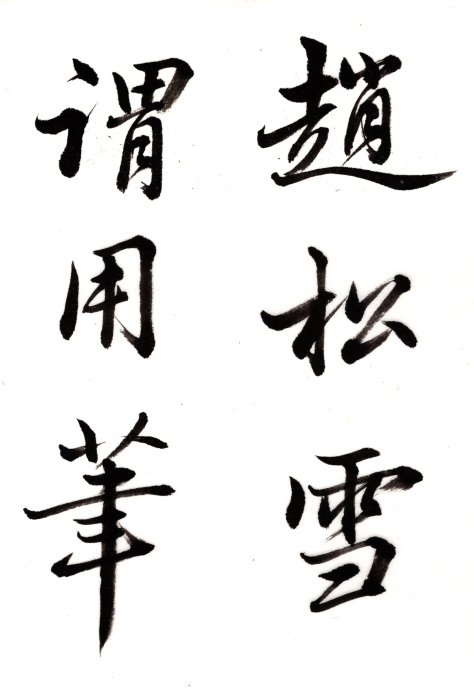 趙松雪
謂用筆